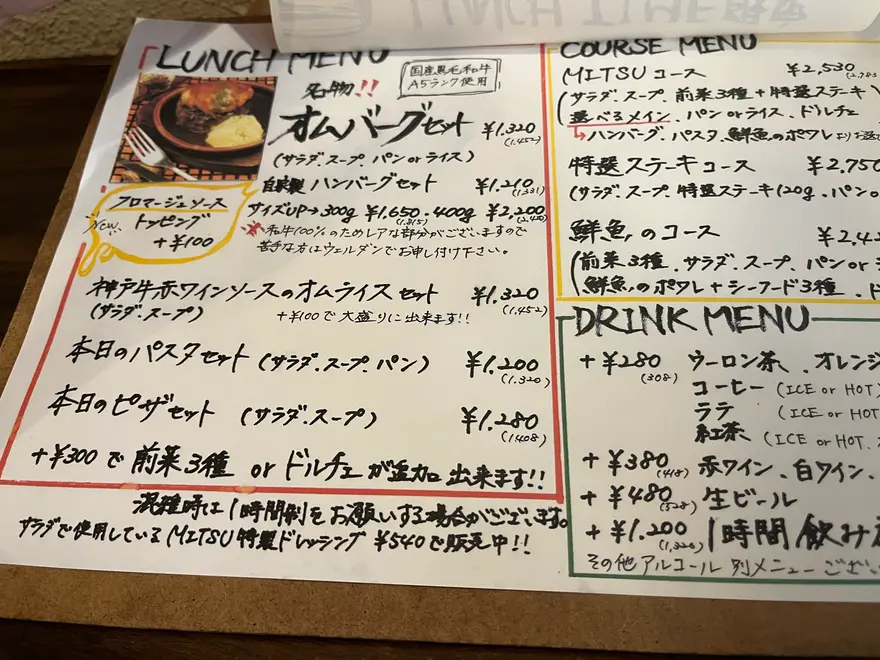 LUNCH MENU
国産黒毛和牛
A5ランク使用
名物!!
オムバーグセット ¥1,320
(1,452)
(サラダ、スープ、パン or ライス)
自家製 ハンバーグセット ¥1,210
(1,331)
サイズUP→300g ¥1,650・400g ¥2,200
(1,815) (2,420)
※和牛100%のためレアな部分がございますので
苦手な方はウェルダンでお申し付け下さい。
フロマージュソース
New トッピング
+¥100
神戸牛赤ワインソースのオムライスセット ¥1,320
(1,452)
(サラダ、スープ) +¥100で大盛りに出来ます!!
本日のパスタセット (サラダ、スープ、パン) ¥1,200
(1,320)
本日のピザセット (サラダ、スープ) ¥1,280
(1408)
+¥300で 前菜3種 or ドルチェが追加出来ます!!
混雑時は1時間制をお願いする場合がございます。
サラダで使用しているMITSU特製ドレッシング ¥540で販売中!!
COURSE MENU
MITSU コース ¥2,530
(サラダ、スープ、前菜3種+特選ステーキ
選べるメイン、パン or ライス、ドルチェ
↳ハンバーグ、パスタ、鮮魚のポワレより
特選ステーキコース ¥2,750
(サラダ、スープ、特選ステーキ120g、パン
鮮魚のコース
(前菜3種、サラダ、スープ、パン or
鮮魚のポワレ+シーフード3種、ド
DRINK MENU
+¥280 ウーロン茶、オレンジ
(308)
コーヒー (ICE or HOT)
ラテ (ICE or HOT
紅茶 (ICE or HOT
+¥380 赤ワイン、白ワイン、
(418)
+¥480 生ビール
(528)
+¥1,200 1時間飲み
(1,320)
その他アルコール 別メニューござい